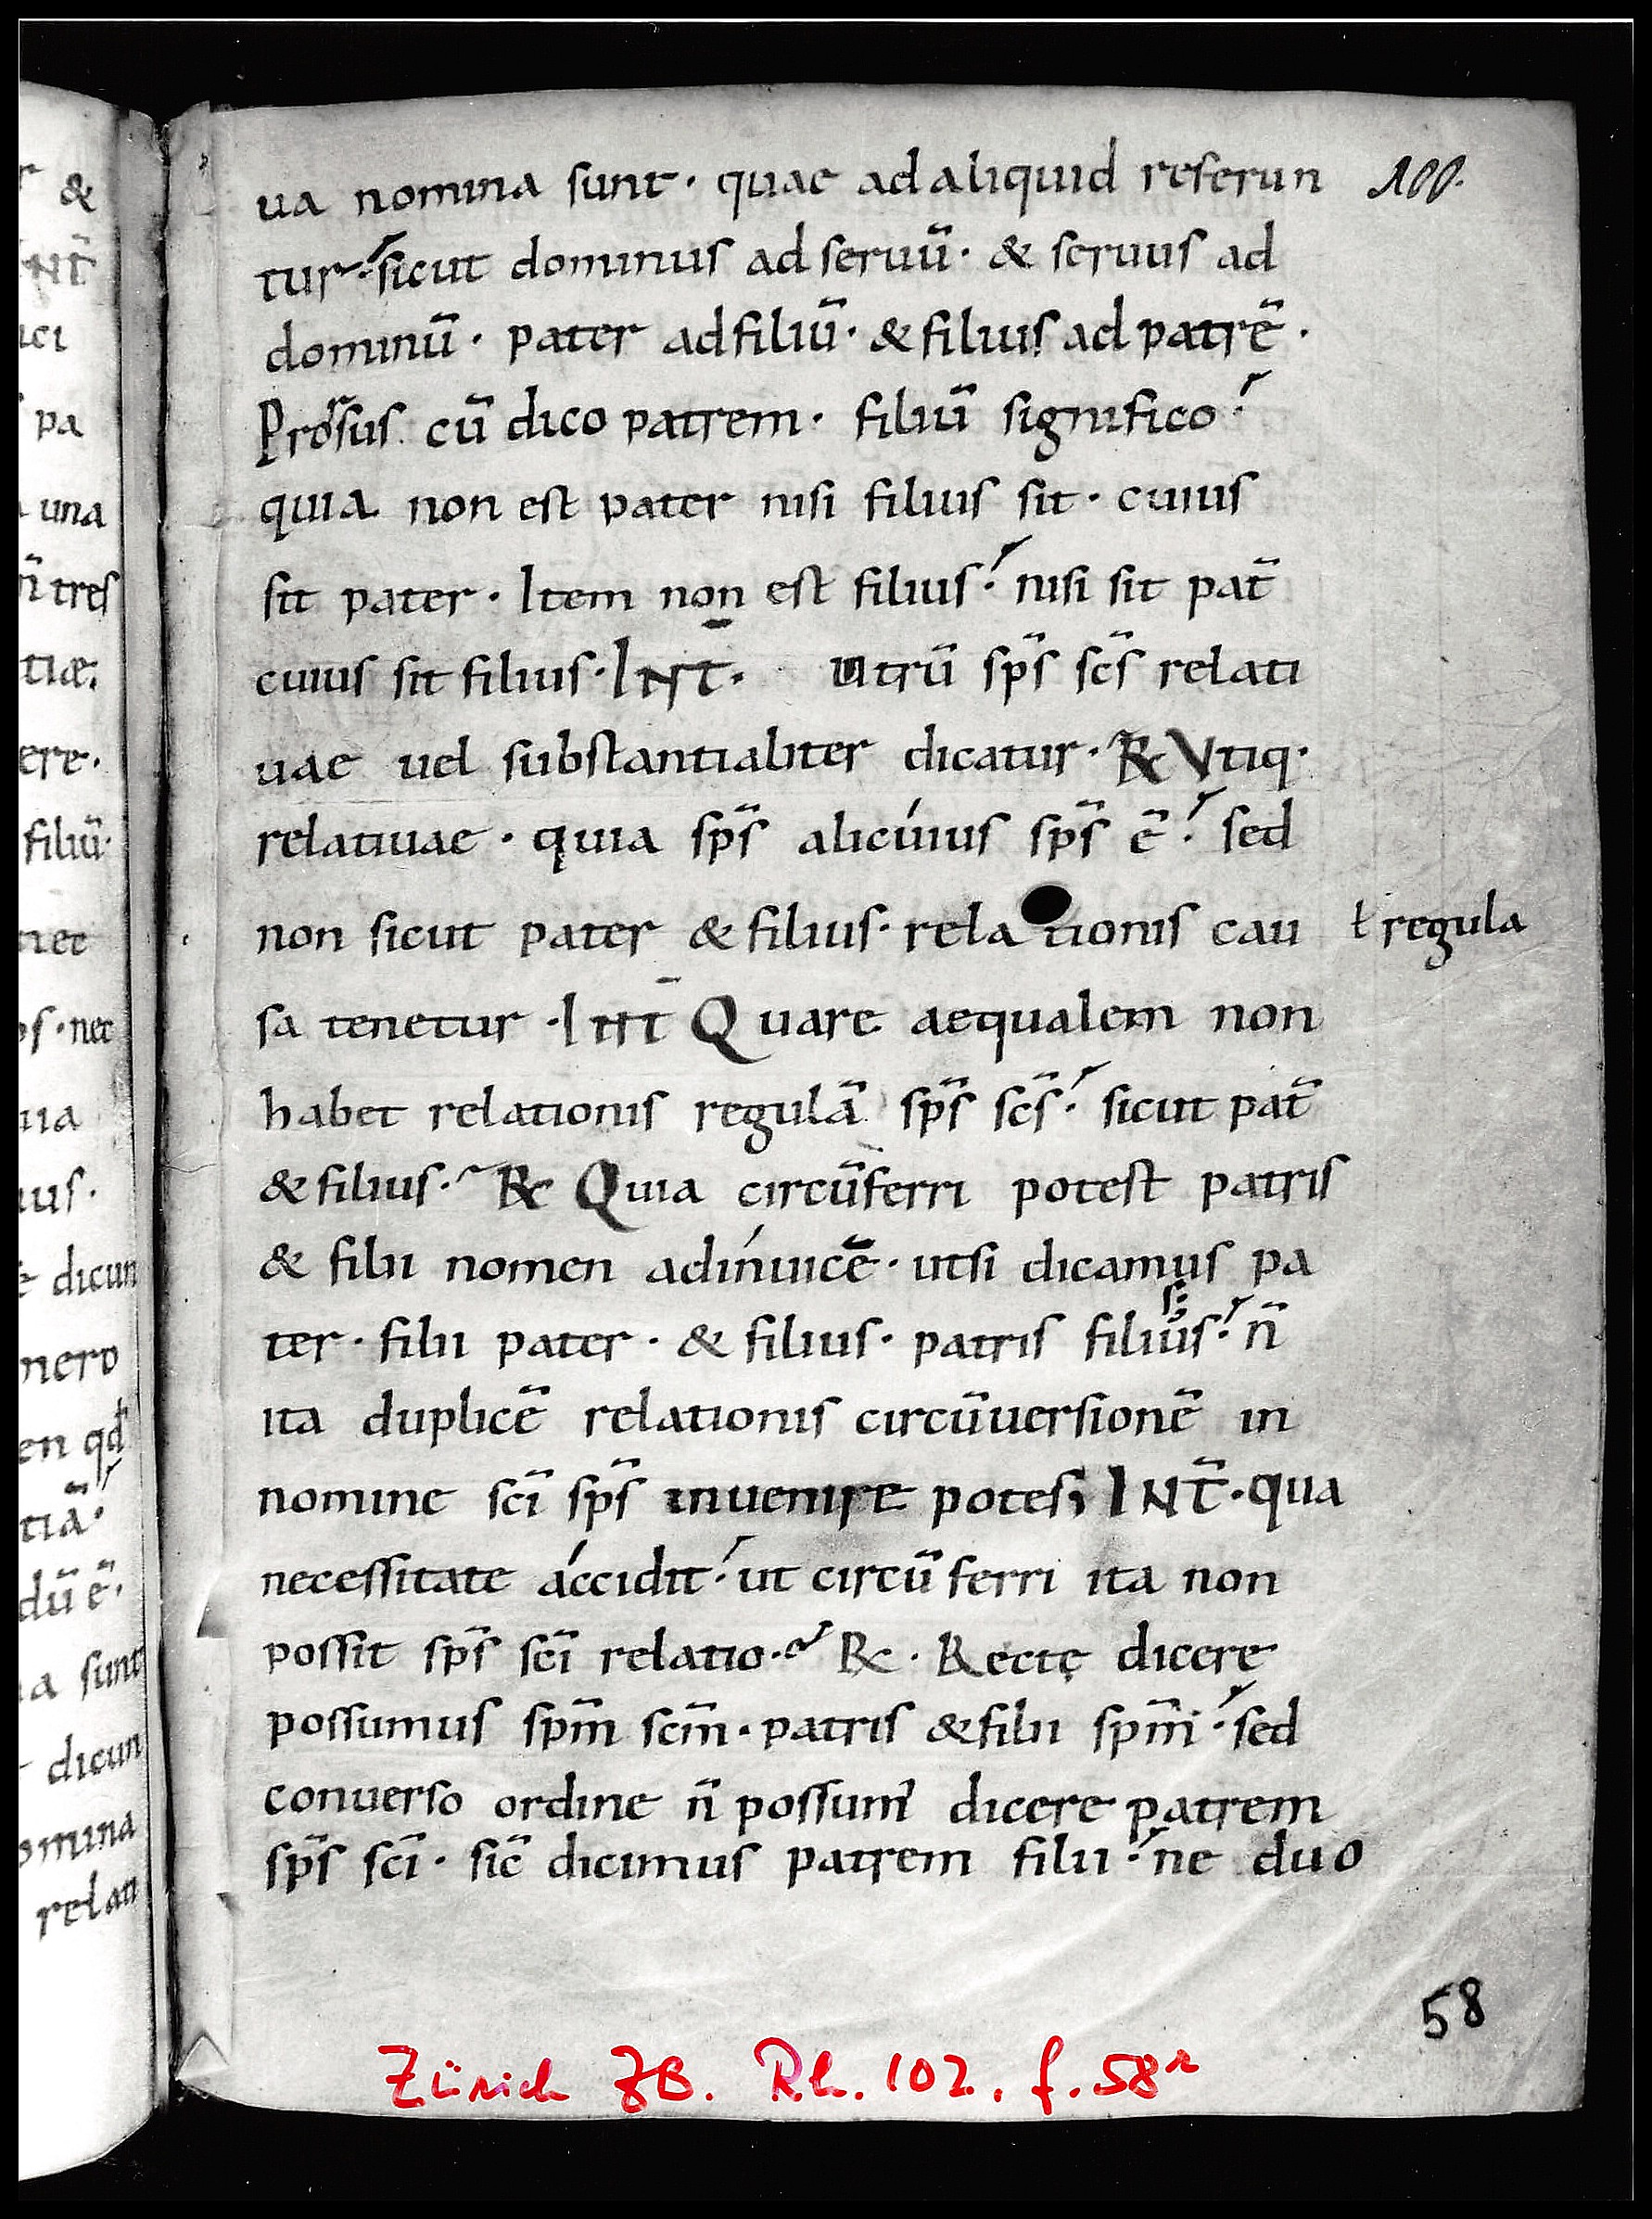 ua nomina sunt · quae ad aliquid referun
100.
tur · sicut dominus ad seruū · & seruus ad
dominū · pater ad filiū · & filius ad patrē ·
Prorsus cū dico patrem · filiū significo ·
quia non est pater nisi filius sit · cuius
sit pater · Item non est filius · nisi sit pat̄
cuius sit filius · INT̄ · Utrū sp̄s sc̄s relati
uae uel substantialiter dicatur · R Vtiq ·
relatiuae · quia sp̄s alicúius sp̄s ē · sed
non sicut pater & filius · relationis cau
ł regula
sa tenetur · INT̄ Quare aequalem non
habet relationis regulā sp̄s sc̄s · sicut pat̄
& filius · R Quia circūferri potest patris
& filii nomen adínuicē · ut si dicamus pa
ter · filii pater · & filius · patris filius · n̄
ita duplicē relationis circūuersionē in
nomine sc̄i sp̄s inuenire potes; INT̄ · qua
necessitate áccidit · ut circūferri ita non
possit sp̄s sc̄i relatio · R · Rectę dicere
possumus sp̄m sc̄m · patris & filii sp̄m · sed
conuerso ordine n̄ possum' dicere patrem
sp̄s sc̄i · sic̄ dicimus patrem filii · ne duo
58
Zürich ZB. Rh. 102, f. 58r
& 
NT̄
ici
pa
una
n̄ tres
tiæ;
ere ·
filiū ·
nec
os · nec
uia
ius ·
dicun
mero
en qđ
tiā ·
dū ē ·
a sunt
dicun
omina
relati